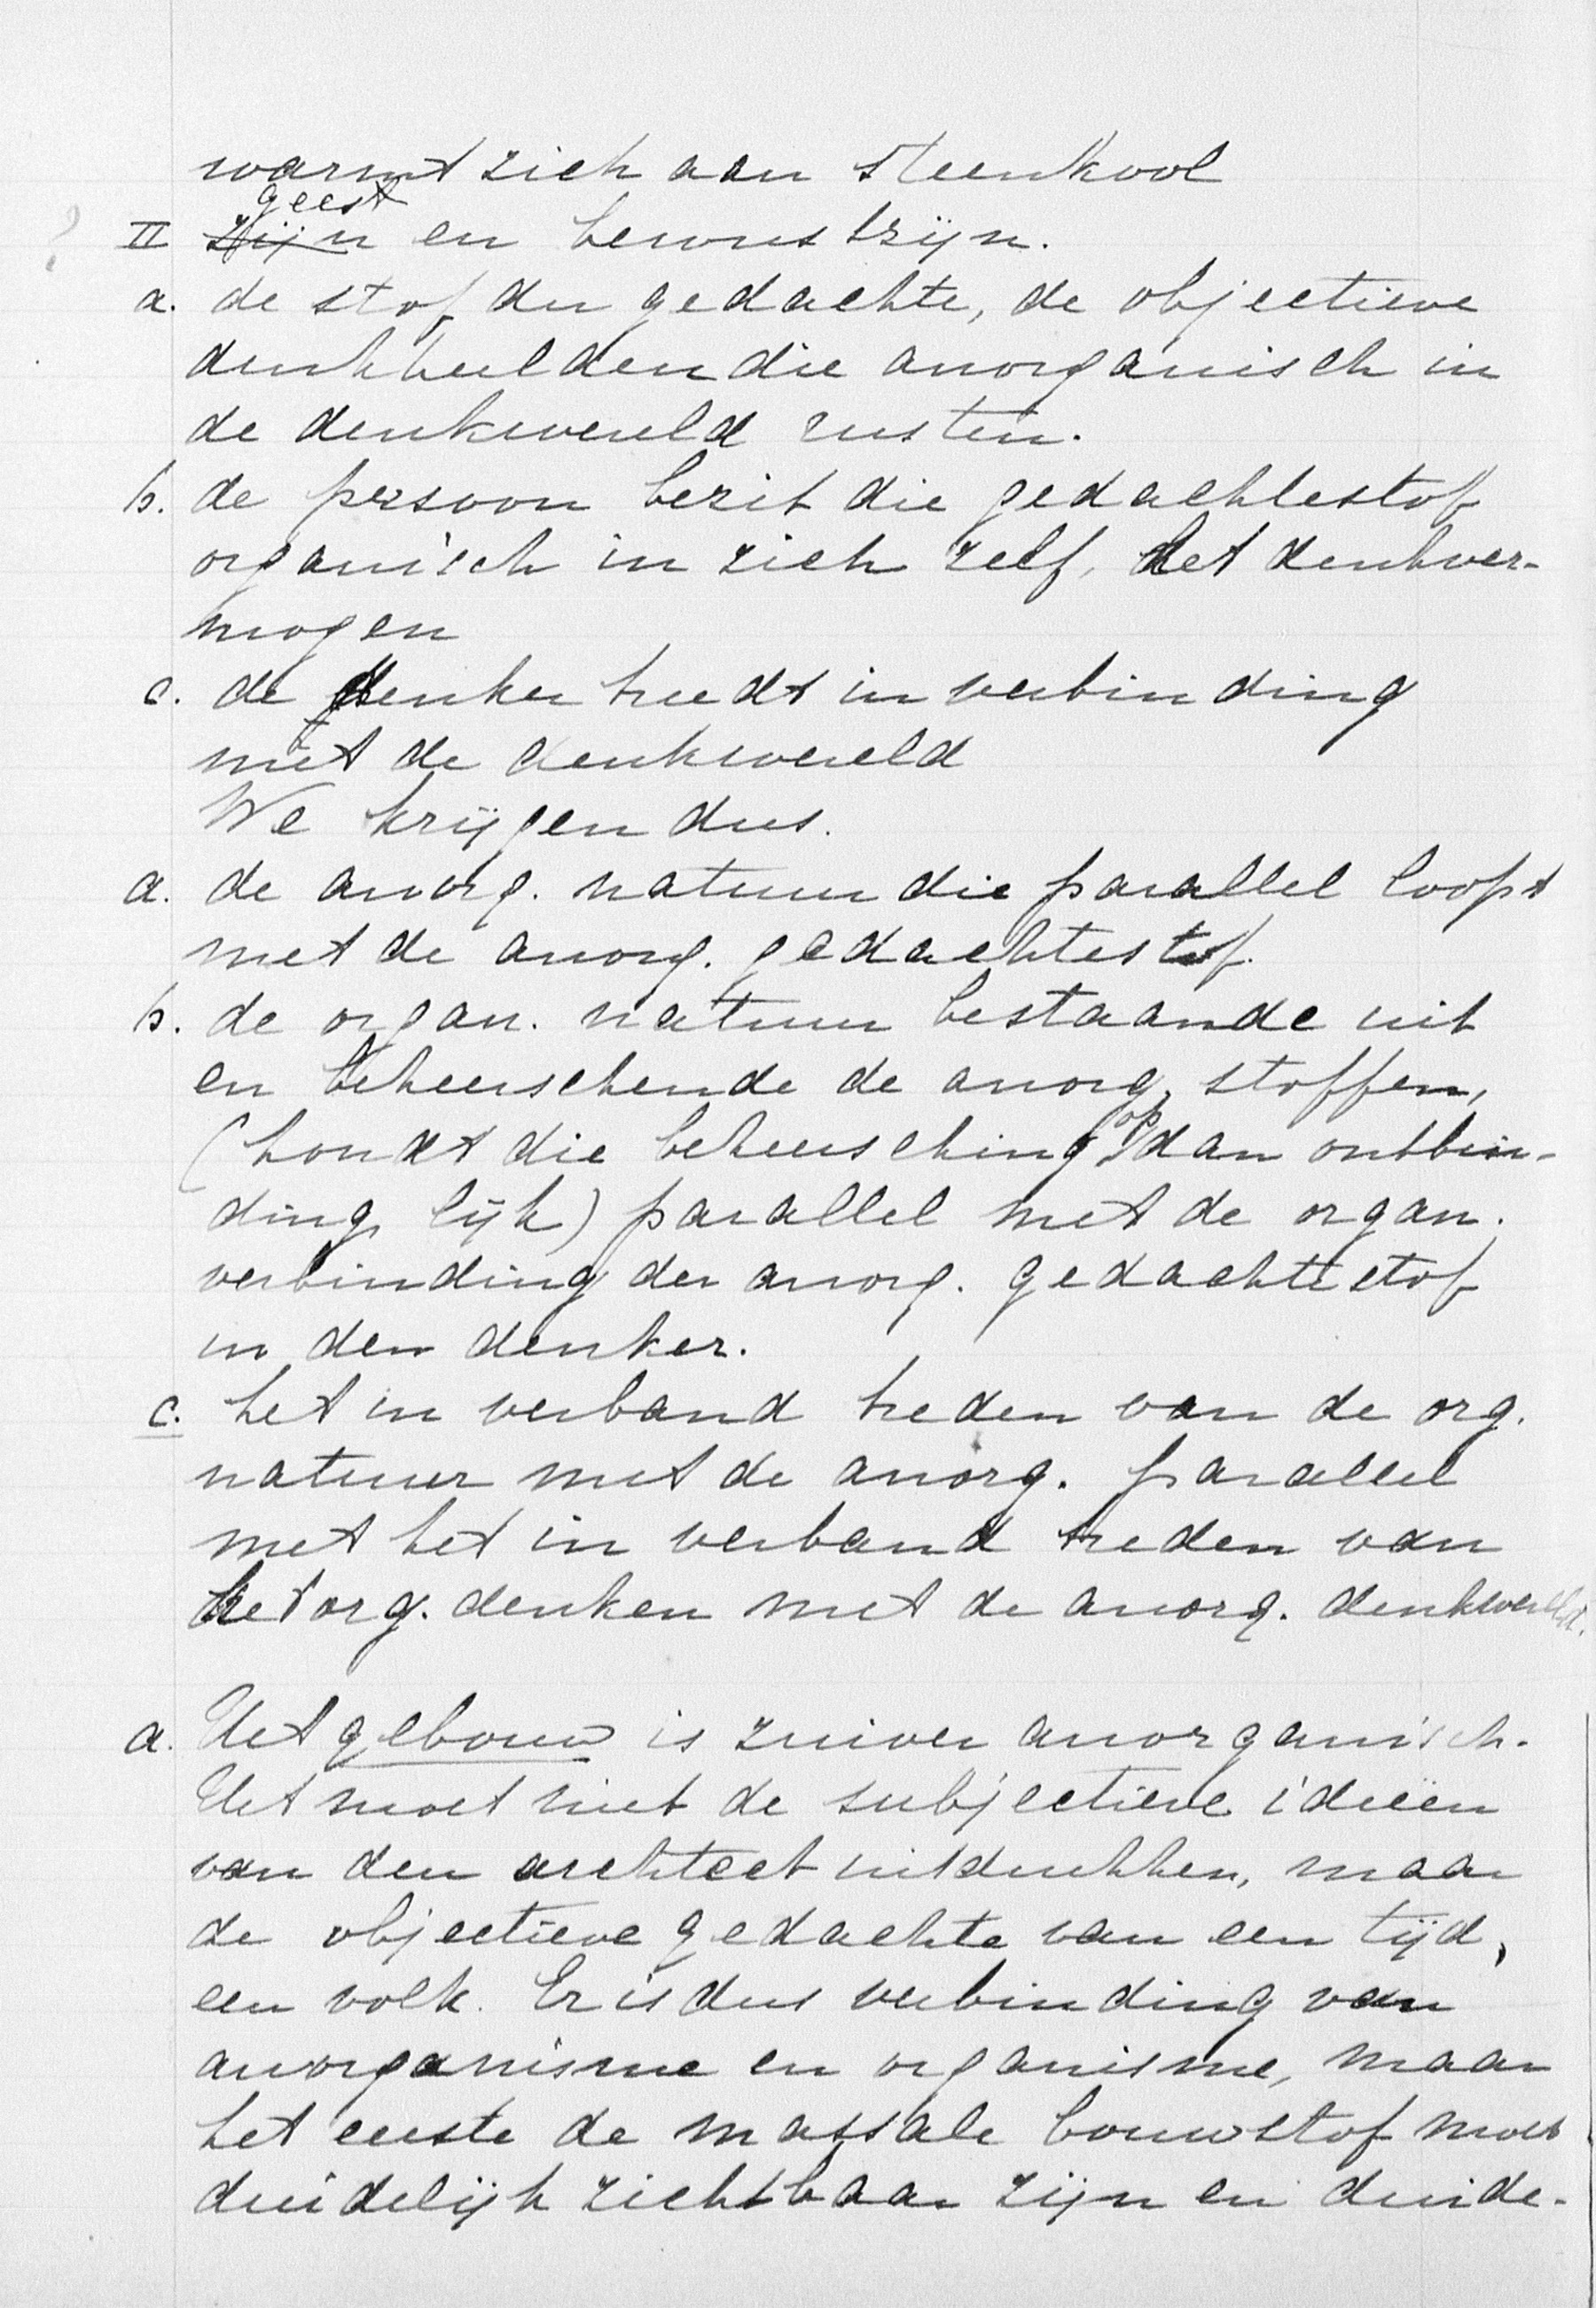 warmt zich aan steenkool
geest
II zijn en bewustzijn.
a. de stof der gedachte, de objectieve
denkbeelden die anorganisch in
de denkwereld rusten.
b. de persoon bezit die gedachtestof
organisch in zich zelf, het denkver-
mogen
c. de denker treedt in verbinding
met de denkwereld
We krijgen dus.
a. de anorg. natuur die parallel loopt
met de anorg. gedachtestof.
b. de organ. natuur bestaande uit
en beheerschende de anorg. stoffen,
op
(houdt die beheersching dan ontbin-
ding, lijk) parallel met de organ.
verbinding der anorg. gedachtestof
in den denker.
c. het in verband treden van de org.
natuur met de anorg. parallel
met het in verband treden van
het org. denken met de anorg. denkwereld.
a. Het gebouw is zuiver anorganisch.
Het moet niet de subjectieve ideeën
van den architect uitdrukken, maar
de objectieve gedachte van een tijd,
een volk. Er is dus verbinding van
anorganisme en organisme, maar
het eerste de massale bouwstof moet
duidelijk zichtbaar zijn en duide-